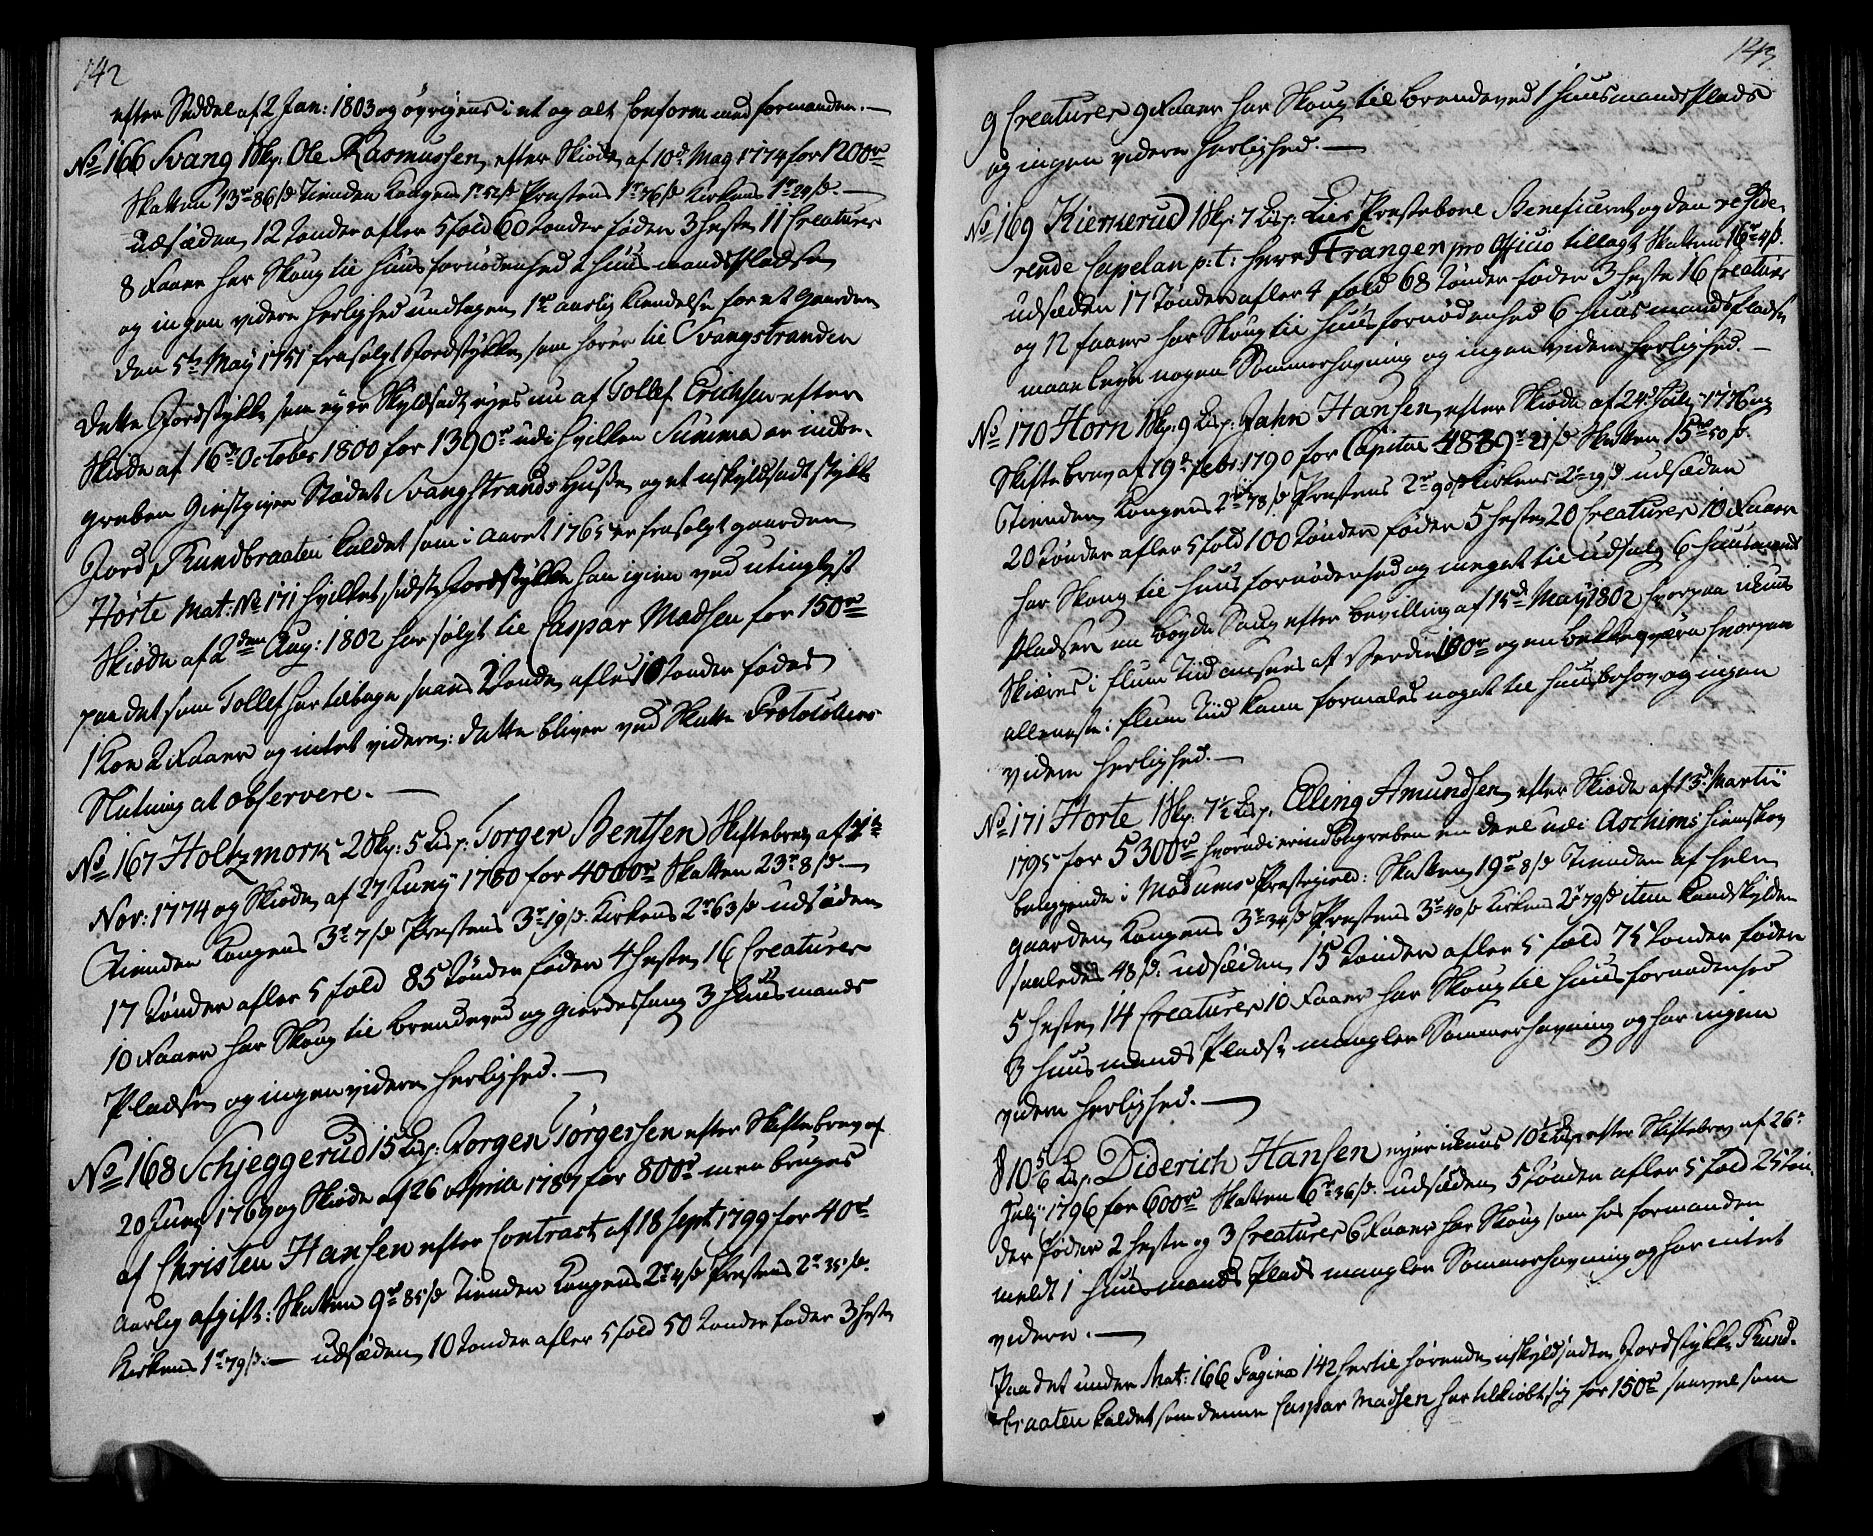 142
efter Seddel af 2 Jan: 1803 og øvrigens i et og alt Conform med formanden. —
No 166 Svang 1 Skp: Ole Rasmussen efter Skiøde af 10de May 1774 for 1200 rd
Skatten 13 rd 86 s Tienden Kongens 1 r 52 s Præstens 1 r 76 s Kirkens 1 r 29 s. —
Udsæden 12 Tønder afler 5 fold 60 Tønder føder 3 heste 11 Creaturer
8 Faarer har Skoug til Huusfornødenhed 2 Huusmands Pladser
og ingen videre herlighed undtagen 1 rd aarlig Kiendelse for et Gaarden
den 5te May 1751 frasolgt Jordstykke som hører til Svangstranden
Dette Jordstykke som er Skyldsadt eyes nu af Tollef Erichsen efter
Skiøde af 16de October 1800 for 1390 rd udi hvilken Summa er indbe-
greben Giestgiver Stædet Svangstrands Huuse og et uskyldsadt stykke
Jord Rundbraaten kaldet som i Aaret 1765 er frasolgt gaarden
Horte Mat: No 171 hvilket sidste Jordstykke han igien ved utinglyst
Skiøde af 2den Aug: 1802 har solgt til Caspar Madsen for 150 rd
paa det som Tollef har tilbage saaes 2 Tønde afler 10 Tønder føder
1 Koe 2 Faarer og intet videre: dette bliver ved Skatte Protocollens
Slutning at observere. —
No 167 Holtzmork 2 Skp: 5 Lisp: Torger Bentsen Skiftebrev af
Nov: 1774 og Skiøde af 27 Junÿ 1780 for 4000 rd Skatten 23 r 8 s. —
Tienden Kongens 3 r 7 s Præstens 3 r 19 s. Kirkens 2 r 63 s udsæden
17 Tønder afler 5 fold 85 Tønder føder 4 heste 16 Creaturer
10 Faarer har Skoug til brendeved og gierdesfang 3 Huusmands
Pladser og ingen videre herlighed. —
No 168 Schjeggerud 15 Lisp: Jørgen Torgersen efter Skiftebrev af
20 Juny 1769 og Skiøde af 26 April 1787 for 800 rd men bruges
af Christen Hansen efter Contract af 18 Sept 1799 for 40 rd
Aarlig afgift: Skatten 9 rd 85 s Tienden Kongens 2 r 4 s Præstens 2 r 35 s.
Kirkens 1 r 79 s. — Udsæden 10 Tønder afler 5 fold 50 Tønder føder 3 heste
143
9 Creaturer 9 Faarer har Skoug til brendeved 1 Huusmands Plads
og ingen videre herlighed. —
No 169 Kiernerud 1 Skp: 7 Lisp: Lier Præstebole Beneficeret og den reside-
rende Capelan p:t: herr Stranger pro Officio tillagt Skatten 16 rd 4 s.
udsæden 17 Tønder afler 4 fold 68 Tønder føder 3 heste 16 Creaturer
og 12 faarer har Skoug til Huusfornødenhed 6 Huusmands Pladse
maae leye nogen Sommerhavning og ingen videre herlighed. —
No 170 Horn 1 Skp: 9 Lisp: Jahn Hansen efter Skiøde af 24de July 1776 og
Skiftebrev af 19de febr: 1790 for Capital 4829 r 21 s Skatten 15 rd 50 s.
Tienden Kongens 2 rd 78 s Præstens 2 r 90 s Kirkens 2 r 19 s udsæden
20 Tønder afler 5 fold 100 Tønder føder 5 heste 20 Creaturer 10 Faarer
har Skoug til Huusfornødenhed og meget til udsalg 6 Huusmands
Pladser en bøyde Saug efter bevilling af 15de May 1802 hvorpaa
Skiæres i flum Tiid ansees af Verdie 100 rd og en bekkeqværn hvorpaa
alleneste i flum Tiid kan formales noget til huusbehov og ingen
videre herlighed. —
No 171 Horte 1 Skp: 7½ Lisp: Elling Amundsen efter Skiøde af 13de Martii
1795 for 5300 rd hvorudi er indbegreben en deel udi Aschims hiemskov
beliggende i Modums Præstegield: Skatten 19 rd 8 s Tienden af hele
gaarden Kongens 3 r 34 s Præstens 3 r 40 s Kirkens 2 r 79 s item Landskylden
saaledes 48 s: udsæden 15 Tønder afler 5 fold 75 Tønder føder
5 heste 14 Creaturer 10 Faarer har Skoug til Huusfornødenhed
3 Huusmands Pladse mangler Sommerhavning og har ingen
videre herlighed. —
Diderich Hansen eyer 10½ Lisp: efter Skiftebrev af 26de
July 1796 for 600 rd Skatten 6 rd 36 s: udsæden 5 Tønder afler 5 fold 25 Tøn-
der føder 2 heste og 3 Creaturer 6 Faarer har Skoug som hos formanden
meldt 1 Huusmands Plads mangler Sommerhavning og har intet
videre. —
Paa det under Mat: 166 Pagina 142 hertil hørende uskyldsadte Jordstykke Rund-
braaten kaldet som denne Caspar Madsen har tilkiøbt sig for 150 rd saavel som